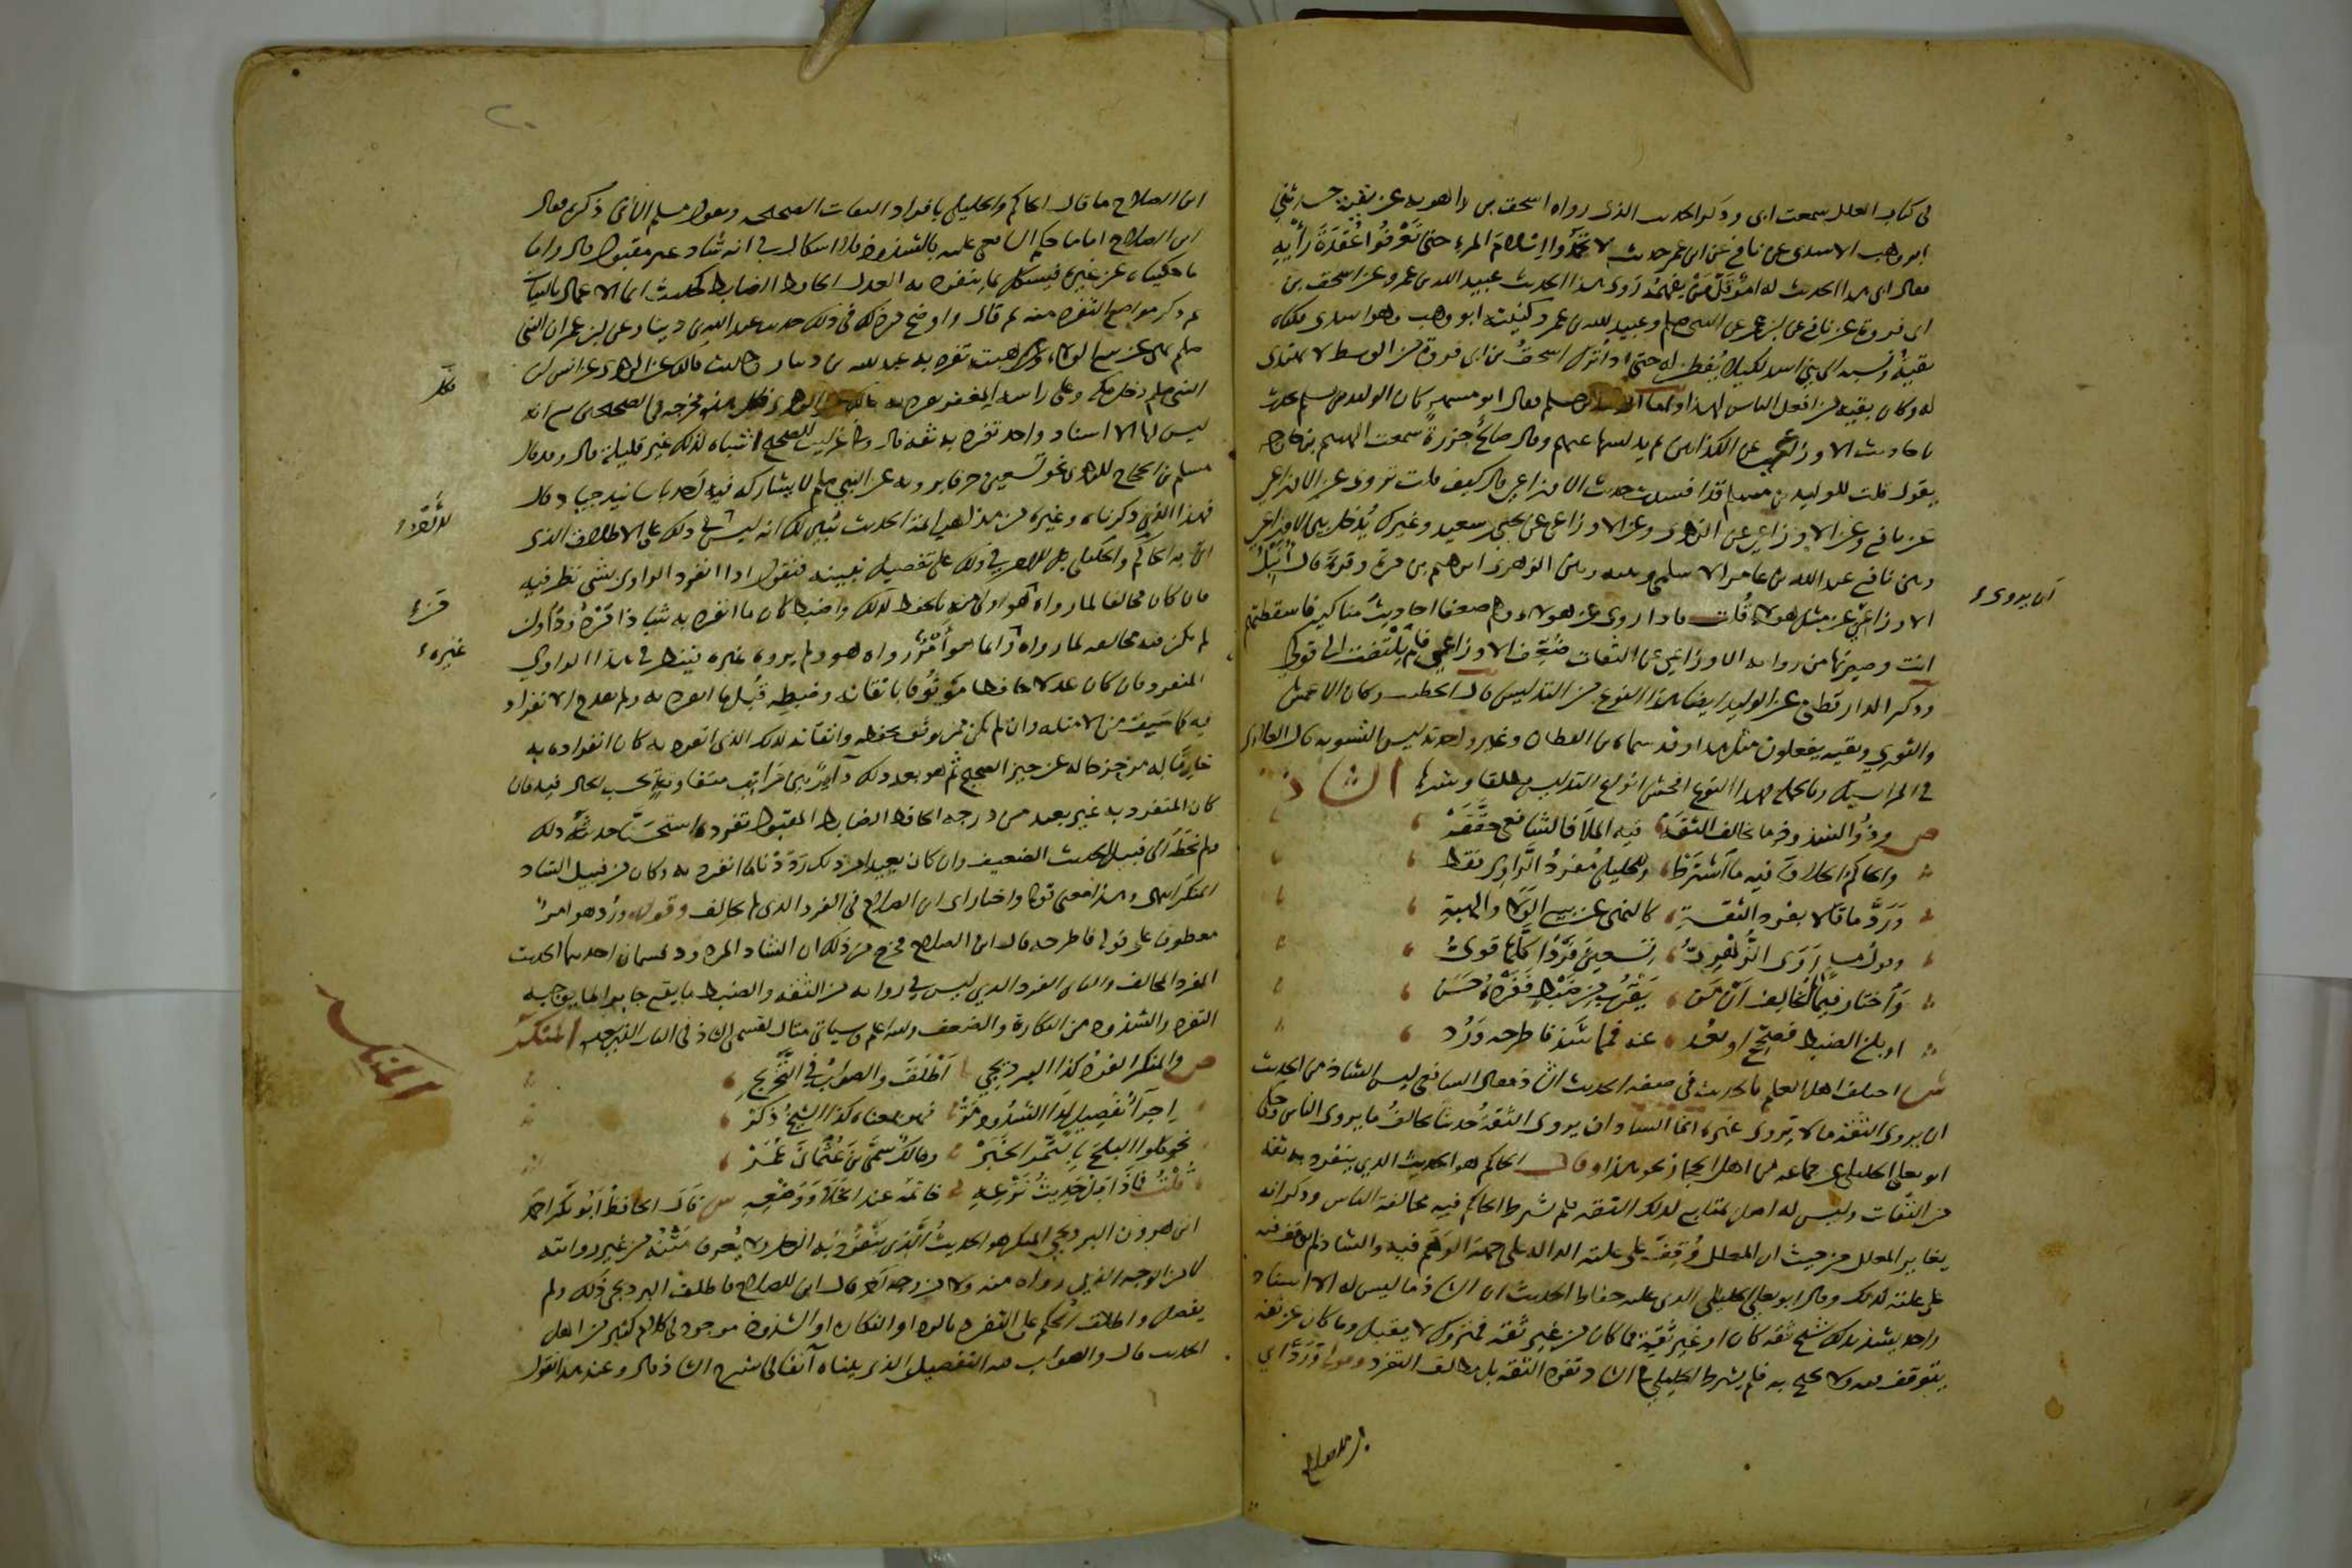 في كتاب العلل سمعت ابى وذكر الحديث الذى رواه اسحق بن راهويه عن بقية حدثني
ابو وهب الاسدى عن نافع عن ابن عمر حديث لا تحمدوا اسلام المرء حتى تعرفوا عقدة رأيه
فقال ابى هذا الحديث له امر قل من يفهمه روى هذا الحديث عبيد الله بن عمرو عن اسحق بن
ابى فروة عن نافع عن ابن عمر عن النبى صلعم وعبيد الله بن عمرو كنيته ابو وهب وهو اسدى فكناه
بقية ونسبه الى بني اسد لكيلا يفطن له حتى اذا ترك اسحق بن ابى فروة من الوسط لا يهتدى
له وكان بقية من افعل الناس لهذا واما الوليد بن مسلم فقال ابو مسهر كان الوليد بن مسلم يحدث
باحاديث الاوزاعي عن الكذابين ثم يدلسها عنهم وقال صالح جزرة سمعت الهيثم بن خارجه
يقول قلت للوليد بن مسلم قد افسدت حديث الاوزاعي قال كيف قلت تروى عن الاوزاعي
عن نافع وعن الاوزاعي عن الزهرى وعن الاوزاعي عن يحيى بن سعيد وغيرك يدخل بين الاوزاعي
وبين نافع عبد الله بن عامر الاسلمى وبينه وبين الزهرى ابراهيم بن مرة وقرة قال انبل
الاوزاعي عن مثل هولاء قلت فاذا روى عن هولاء وهم ضعفا احاديث مناكير فاسقطتهم
ان يروى
انت وصيرتها من رواية الاوزاعي عن الثقات ضعف الاوزاعي فلم يلتفت الى قولي
وذكر الدارقطني عن الوليد ايضا هذا النوع من التدليس قال الخطيب وكان الاعمش
والثوري وبقيه يفعلون مثل هذا وقد سماه ابن القطان وغير واحد تدليس التسويه قال العلائى
في المراسيل وبالجملة فهذا النوع افحش انواع التدليس مطلقا وشرها الشاذ
ص وذو الشذوذ ما يخالف الثقة فيه الملا فالشافعي حققه
والحاكم الخلاف فيه ما اشترط وللخليلي مفرد الراوى فقط
ورد ما قالا بفرد الثقة كالنهى عن بيع الولا والهبة
وقول مسلم روى الزهرى تسعين فردا كلها قوى
واختار فيما لم يخالف ان من يقرب من ضبط ففرده حسن
او بلغ الضبط فصحح او بعد عنه فمما شذ فاطرحه ورد
ش اختلف اهل العلم بالحديث في صفة الحديث الشاذ فقال الشافعي ليس الشاذ من الحديث
ان يروى الثقة ما لا يروى غيره انما الشاذ ان يروى الثقة حديثا يخالف ما يروى الناس وحكى
ابو يعلى الخليلى عن جماعه من اهل الحجاز نحو هذا وقال الحاكم هو الحديث الذي ينفرد به ثقة
من الثقات وليس له اصل بمتابع لذلك الثقه فلم يشرط الحاكم فيه مخالفة الناس وذكر انه
يغاير المعلل من حيث ان المعلل وقف على علته الداله على جهة الوهم فيه والشاذ لم يوقف فيه
على علته كذلك وقال ابو يعلى الخليلى الذى عليه حفاظ الحديث ان الشاذ ما ليس له الا اسناد
واحد يشذ بذلك شيخ ثقه كان او غير ثقة فما كان من غير ثقه فمتروك لا يقبل وما كان عن ثقه
يتوقف فيه ولا يحتج به فلم يشرط الخليلي في الشاذ تفرد الثقه بل مطلق التفرد وقوله ورد اي
ابن الصلاح
ابن الصلاح ما قال الحاكم والخليلي بافراد الثقات الصحيحه وبقول مسلم الآتى ذكره فقال
ابن الصلاح اما ما حكم الشافعي عليه بالشذوذ فلا اشكال في انه شاذ غير مقبول قال واما
ما حكيناه عن غيره فيشكل بما ينفرد به العدل الحافظ الضابط كحديث انما الاعمال بالنيات
ثم ذكر مواضع التفرد منه ثم قال واوضح من ذلك في ذلك حديث عبد الله بن دينار عن ابن عمر ان النبى
صلعم نهى عن بيع الولاء وهبته تفرد به عبد الله بن دينار وحديث مالك عن الزهرى عن انس ان
النبى صلعم دخل مكه وعلى راسه المغفر تفرد به مالك عن الزهرى فكل هذه مخرجه في الصحيحين مع انه
ليس لها الا اسناد واحد تفرد به ثقه قال وفي غرايب الصحيح اشباه لذلك غير قليلة قال وقد قال
مسلم بن الحجاج للزهرى نحو تسعين حرفا يرويه عن النبي صلعم لا يشاركه فيه احد باسانيد جياد قال
فهذا الذي ذكرناه وغيره من مذاهب ائمة الحديث يبين لك انه ليس الامر في ذلك على الاطلاق الذى
اتى به الحاكم والخليلى بل الامر في ذلك على تفصيل نبينه فنقول اذا انفرد الراوى بشى نظر فيه
فان كان مخالفا لما رواه من هو اولى منه بالحفظ لذلك واضبط كان ما انفرد به شاذا مردودا وان
لم يكن فيه مخالفه لما رواه غيره وانما هو امر رواه هو ولم يروه غيره فينظر في هذا الراوى
غيره
المنفرد فان كان عدلا حافظا موثوقا باتقانه وضبطه قبل ما انفرد به ولم يقدح الانفراد
فيه كما سبق من الامثله وان لم يكن ممن يوثق بحفظه واتقانه لذلك الذى انفرد به كان انفراده به
خارما له مزحزحا له عن حيز الصحيح ثم هو بعد ذلك داير بين مراتب متفاوتة بحسب الحال فيه فان
كان المنفرد به غير بعيد من درجه الحافظ الضابط المقبول تفرده استحسنا حديثه ذلك
ولم نحطه الى قبيل الحديث الضعيف وان كان بعيدا من ذلك رددنا ما انفرد به وكان من قبيل الشاذ
المنكر انتهى وهذا معنى قوله واختار اى ابن الصلاح في الفرد الذى لم يخالف وقوله ورد هو امر
معطوف على قوله فاطرحه قال ابن الصلاح فخرج من ذلك ان الشاذ المردود قسمان احدهما الحديث
الفرد المخالف والثانى الفرد الذي ليس في راويه من الثقه والضبط ما يقع جابرا لما يوجبه
التفرد والشذوذ من النكارة والضعف والله اعلم وسياتي مثال لقسمي الشاذ في الباب الذي يليه المنكر
المنكر
ص والمنكر الفرد كذا البرديجي اطلق والصواب في التخريج
اجرا تفصيل لدا الشذوذ مر فهو بمعناه كذا الشيخ ذكر
نحو كلوا البلح بالتمر الخبر ومالك سمى ابن عثمان عمر
قلت فماذا بل حديث نزعه خاتمه عند الخلا ووضعه ش قال الحافظ ابو بكر احمد
ابن هرون البرديجي المنكر هو الحديث الذى ينفرد به الرجل ولا يعرف متنه من غير روايته
لا من الوجه الذي رواه منه ولا من وجه آخر قال ابن الصلاح فاطلق البرديجى ذلك ولم
يفصل واطلاق الحكم على التفرد بالرد او النكارة او الشذوذ موجود في كلام كثير من اهل
الحديث قال والصواب فيه التفصيل الذى بيناه آنفا في شرح الشاذ قال وعند هذا نقول